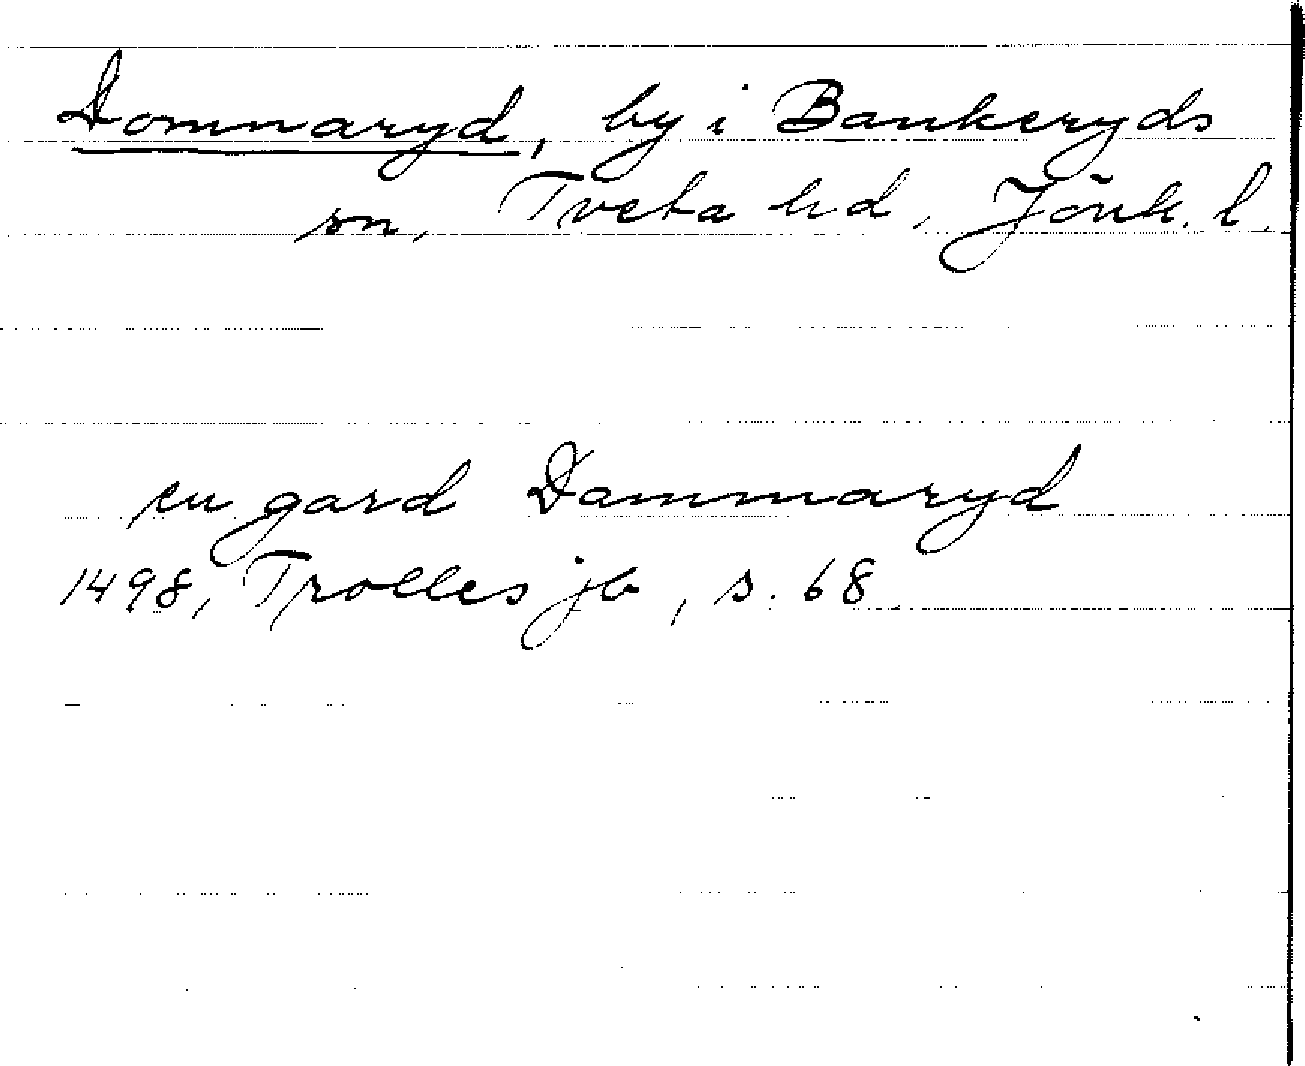 Domnaryd, by i Bankeryds
sn, Tveta hd, Jönk. l.
en gard Dammaryd
1498, Trolles jb, s. 68